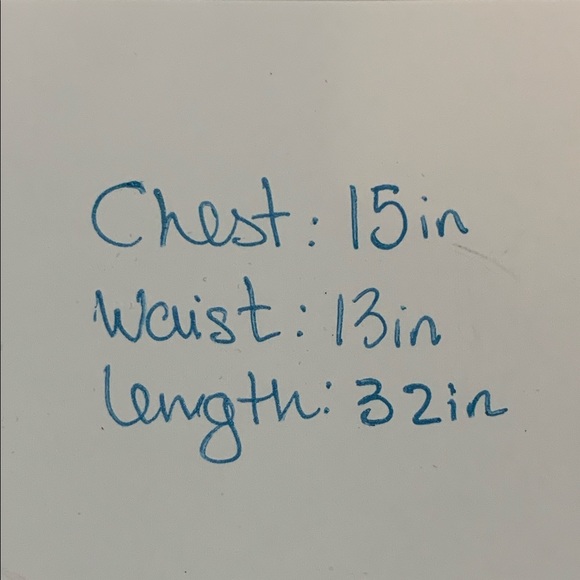 Chest: 15in
Waist: 13in
Length: 32in